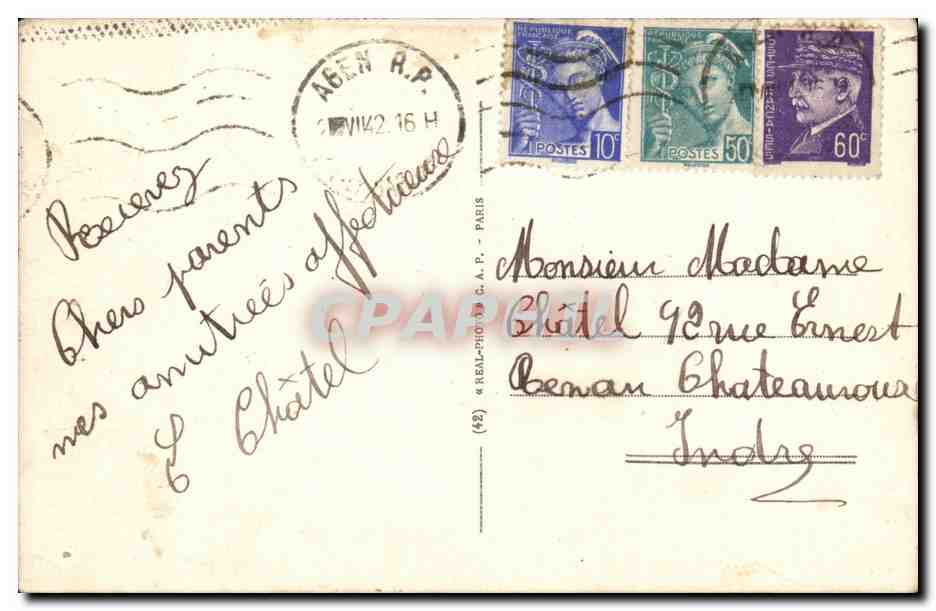 AGEN R.P.
VII42. 16 H
RÉPUBLIQUE
FRANÇAISE
POSTES 10c
RÉPUBLIQUE
FRANÇAISE
POSTES 50c
POSTES FRANÇAISES
60c
Recevez
Chers parents
mes amitiés affectueuse
E Châtel
CPAPHIL
(42) « REAL-PHOTO » C. A. P. - PARIS
Monsieur Madame
Châtel 92 rue Ernest
Renan Chateauroux
Indre